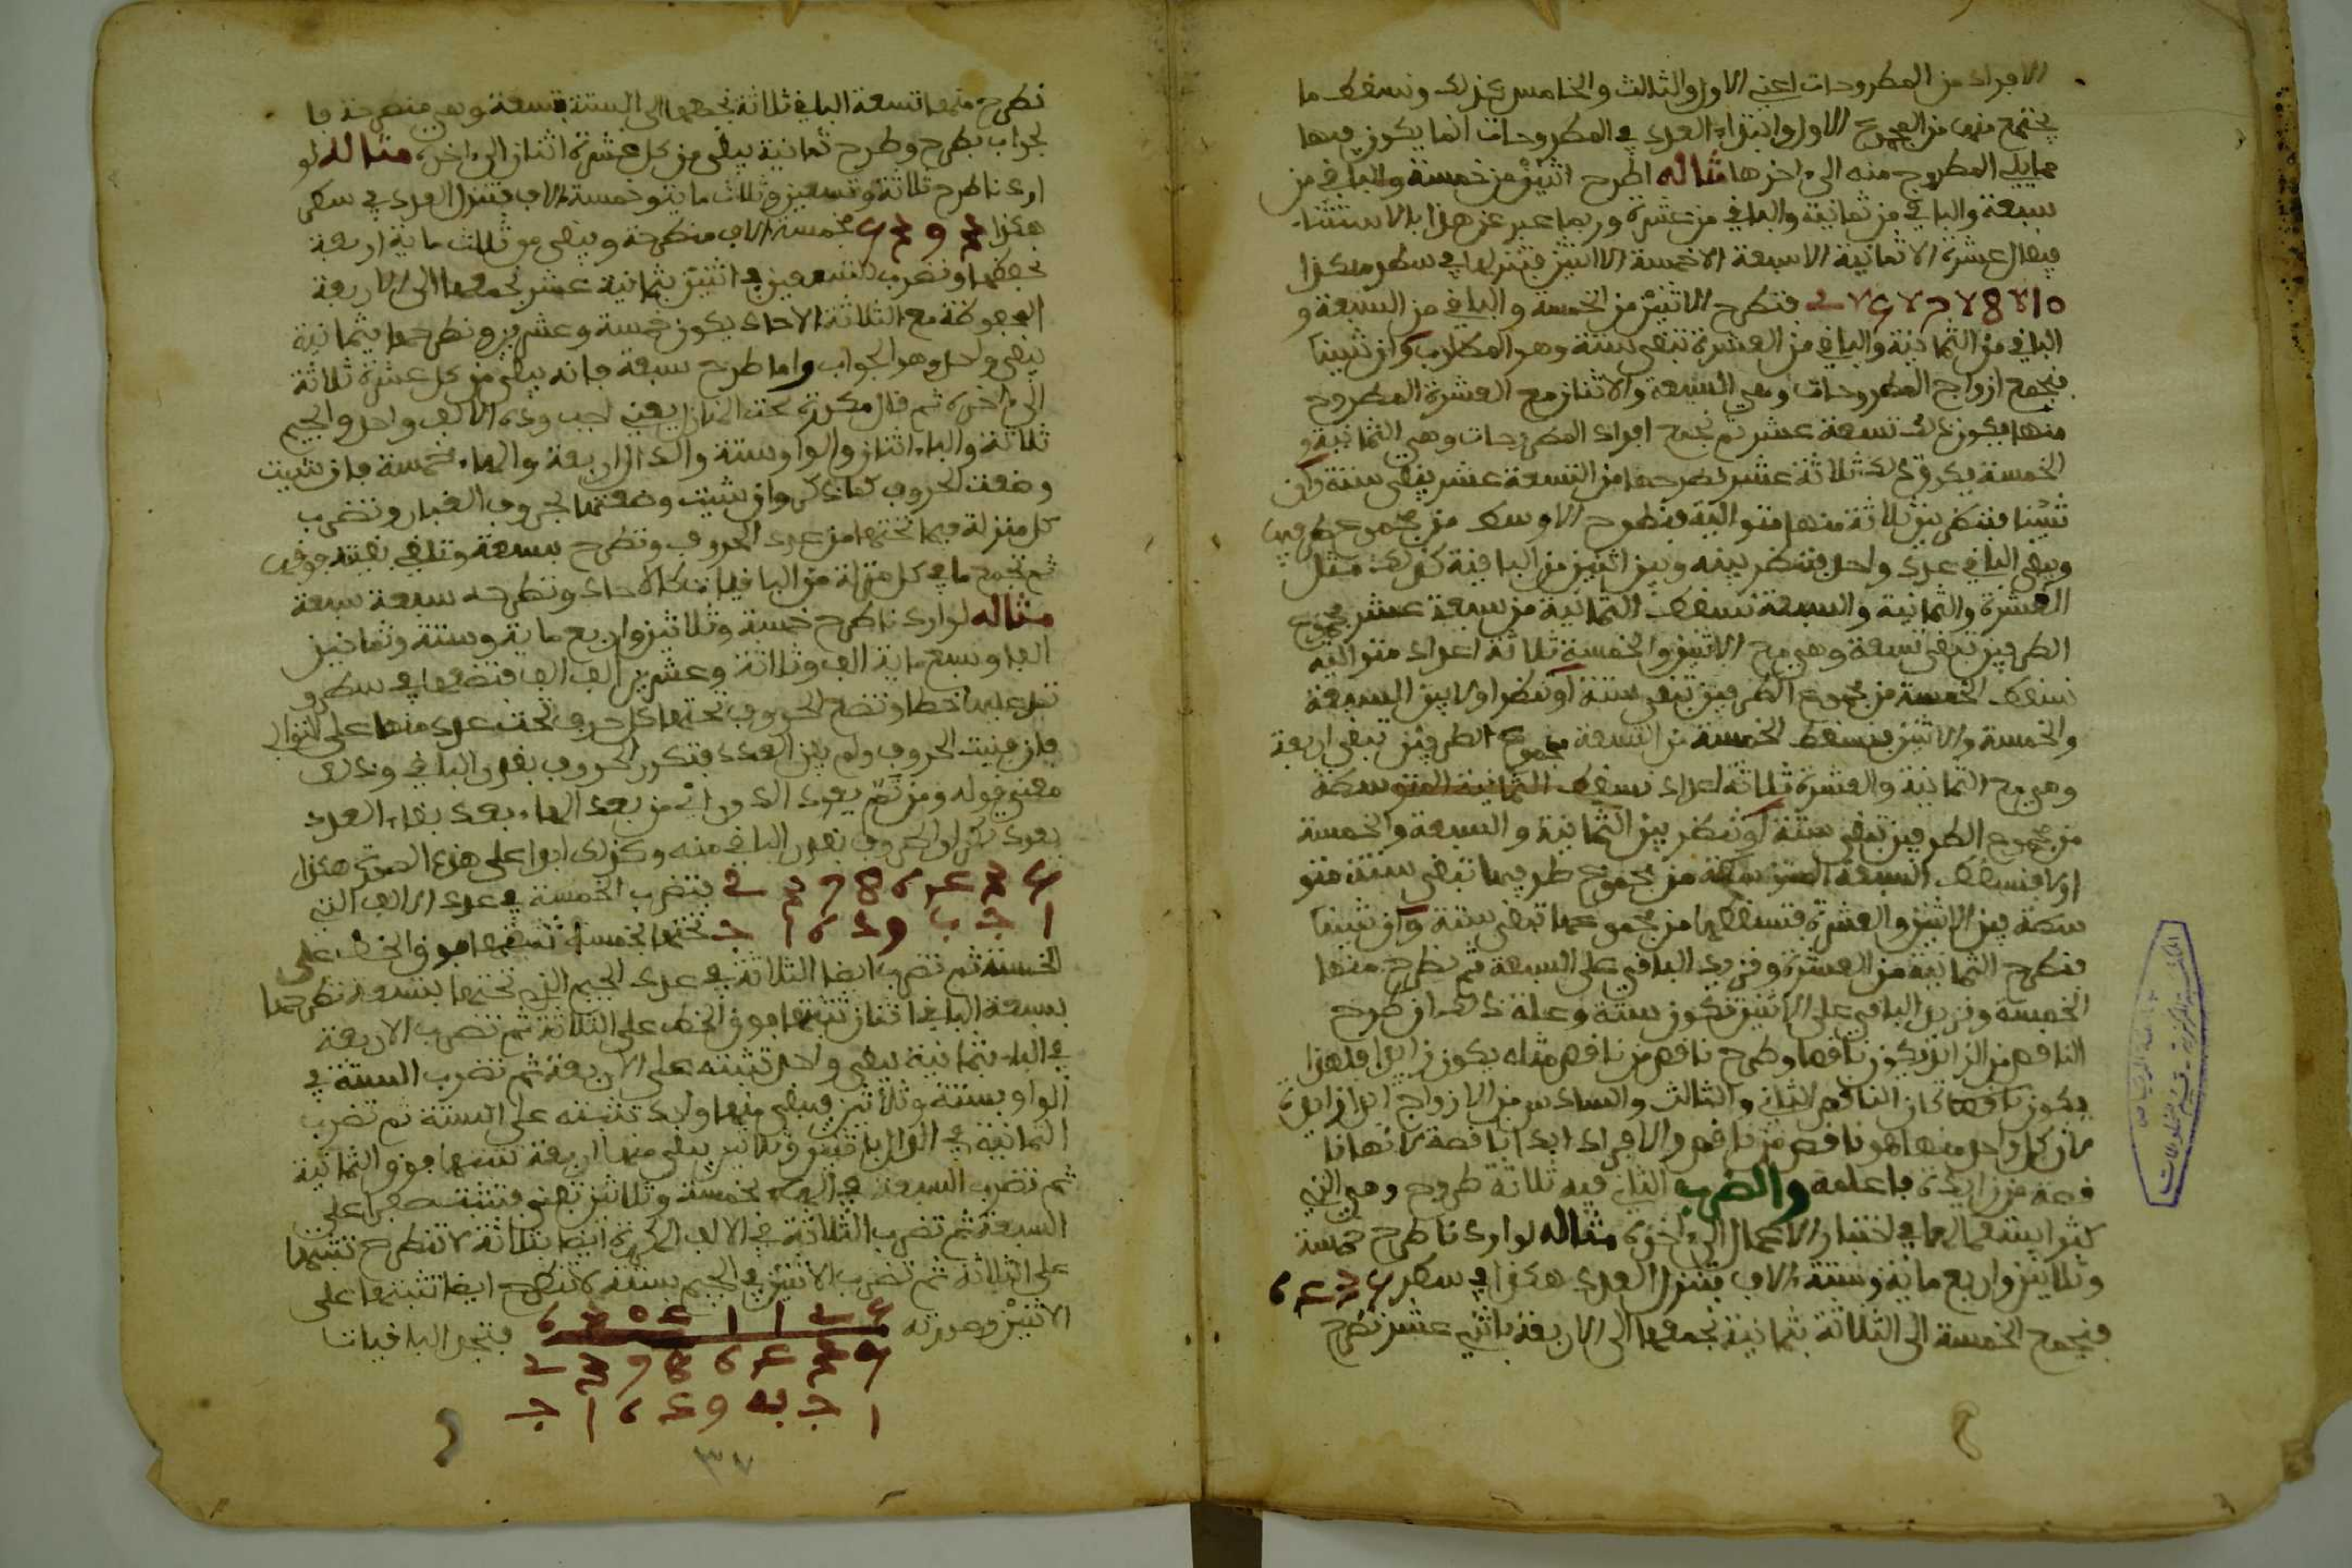 الافراد من المطروحات اعني الاول والثالث والخامس كذلك ونسقط ما
يجتمع منها من المجموع الاول وابتداء العدد في المطروحات انما يكون فيها
مما يلي المطروح منه الى اخرها مثاله اطرح اثنين من خمسة والباقي من
سبعة والباقي من ثمانية والباقي من عشرة وربما عبر عن هذا بالاستثناء
فيقال عشرة الا ثمانية الا سبعة الا خمسة الا اثنين فتنزلها في سطر هكذا
فتطرح الاثنين من الخمسة والباقي من السبعة و
الباقي من الثمانية والباقي من العشرة تبقى ستة وهو المطلوب وان شئنا
فنجمع ازواج المطروحات وهي السبعة والاثنان مع العشرة المطروح
منها فيكون ذلك تسعة عشر ثم نجمع افراد المطروحات وهي الثمانية و
الخمسة يكون ذلك ثلاثة عشر نطرحها من التسعة عشر يبقى ستة وان
شئنا فننظر بين ثلاثة منها متوالية فنطرح الاوسط من مجموع طرفيها
ويبقى الباقي عدد واحد فننظر بينه وبين اثنين من الباقية كذلك مثل
العشرة والثمانية والسبعة نسقط الثمانية من سبعة عشر مجموع
الطرفين تبقى تسعة وهي مع الاثنين والخمسة ثلاثة اعداد متوالية
نسقط الخمسة من مجموع الطرفين تبقى ستة او ننظر اولا بين السبعة
والخمسة والاثنين فنسقط الخمسة من التسعة مجموع الطرفين تبقى اربعة
وهي مع الثمانية والعشرة ثلاثة اعداد نسقط الثمانية المتوسطة
من مجموع الطرفين تبقى ستة او ننظر بين الثمانية والسبعة والخمسة
اولا فنسقط السبعة المتوسطة من مجموع طرفيها تبقى ستة متو
سطة بين الاثنين والعشرة فنسقطها من مجموعهما تبقى ستة وان شئنا
فنطرح الثمانية من العشرة ونزيد الباقي على السبعة ثم نطرح منها
الخمسة ونزيد الباقي على الاثنين تكون ستة وعلة ذلك ان طرح
الناقص من الزائد يكون ناقصا وطرح ناقص من ناقص مثله يكون زايدا فلهذا
يكون ناقصا كان الناقص الثاني والثالث والسادس من الازواج ابدا زايدة
لان كل واحد منها هو ناقص من ناقص والافراد ابدا ناقصة لانها نا
قصة من زايدة فاعلمه والضرب الثاني فيه ثلاثة طروح وهي التي
كثر استعمالها في اختبار الاعمال الى اخره مثاله لو اردنا طرح خمسة
وثلاثين واربع ماية وستة الاف فتنزل العدد هكذا في سطر 6435
فنجمع الخمسة الى الثلاثة بثمانية نجمعها الى الاربعة باثني عشر نطرح
نطرح منها تسعة الباقي ثلاثة نجمعها الى الستة بتسعة وهي منطرحة فا
لجواب يطرح وطرح ثمانية يبقى من كل عشرة اثنان الى اخره مثاله لو
اردنا طرح ثلاثة وتسعين وثلاث ماية وخمسة الاف فتنزل العدد في سطر
هكذا 5393 فخمسة الاف منطرحة ويبقى من ثلاث ماية اربعة
نحفظها ونضرب التسعين في اثنين بثمانية عشر نجمعها الى الاربعة
المحفوظة مع الثلاثة الاحاد يكون خمسة وعشرين ونطرحها بثمانية
يبقى واحد وهو الجواب واما طرح سبعة فانه يبقى من كل عشرة ثلاثة
الى اخره ثم قال مكررة تحت المنازل يعني اجب وده الالف واحد والجيم
ثلاثة والباء اثنان والواو ستة والدال اربعة والهاء خمسة فان شئت
وضعت الحروف كما ذكر وان شئت وضعتها بحروف الغبار وتضرب
كل منزلة فيما تحتها من عدد الحروف وتطرح بسبعة وتلقي بقيته فوقها
ثم تجمع ما في كل منزلة من الباقيات كالاحاد وتطرحه سبعة سبعة
مثاله لو اردنا طرح خمسة وثلاثين واربع ماية وستة وثمانين
الفا وسبع ماية الف وثلاثة وعشرين الف الف فتضعها في سطر و
تمد عليها خطا وتضع الحروف تحتها كل حرف تحت عدد منها على التوالي
فان فنيت الحروف ولم يفن العدد فتكرر الحروف بقدر الباقي وذلك
معنى قوله ومن ثم يعود الدور اي من بعد الهاء بعد بقاء العدد
يعود تكرار الحروف بقدر الباقي منه وكذلك ابدا على هذه الصورة هكذا
فتضرب الخمسة في عدد الالف التي
ا ج ب و د ه ا ج تحتها بخمسة تثبتها فوق الخط على
الخمسة ثم تضرب ايضا الثلاثة في عدد الجيم التي تحتها بتسعة تطرحها
بسبعة الباقي اثنان تثبتها فوق الخط على الثلاثة ثم تضرب الاربعة
في الباء بثمانية يبقى واحد تثبته على الاربعة ثم تضرب الستة في
الواو بستة وثلاثين ويبقى منها واحد تثبته على الستة ثم تضرب
الثمانية في الدال باثنين وثلاثين يبقى منها اربعة تثبتها فوق الثمانية
ثم تضرب السبعة في الهاء بخمسة وثلاثين تفنى فتثبت صفرا على
السبعة ثم تضرب الثلاثة في الالف المكررة ايضا بثلاثة لا تنطرح تثبتها
على الثلاثة ثم تضرب الاثنين في الجيم بستة لا تنطرح ايضا تثبتها على
الاثنين وصورته 6 3 0 4 1 1 2 5 فتجمع الباقيات
2 3 7 8 6 4 3 5
ا ج ب و د ه ا ج
٣٧